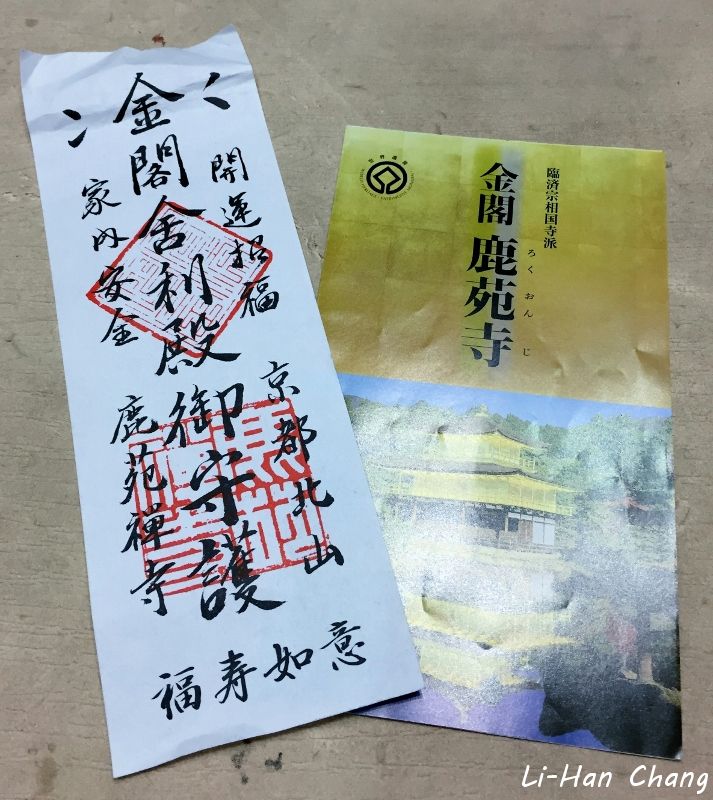 金閣舎利殿御守護
開運招福
家内安全
京都北山
鹿苑禅寺
福寿如意
臨済宗相国寺派
金閣 鹿苑寺
ろく おん じ
Li-Han Chang